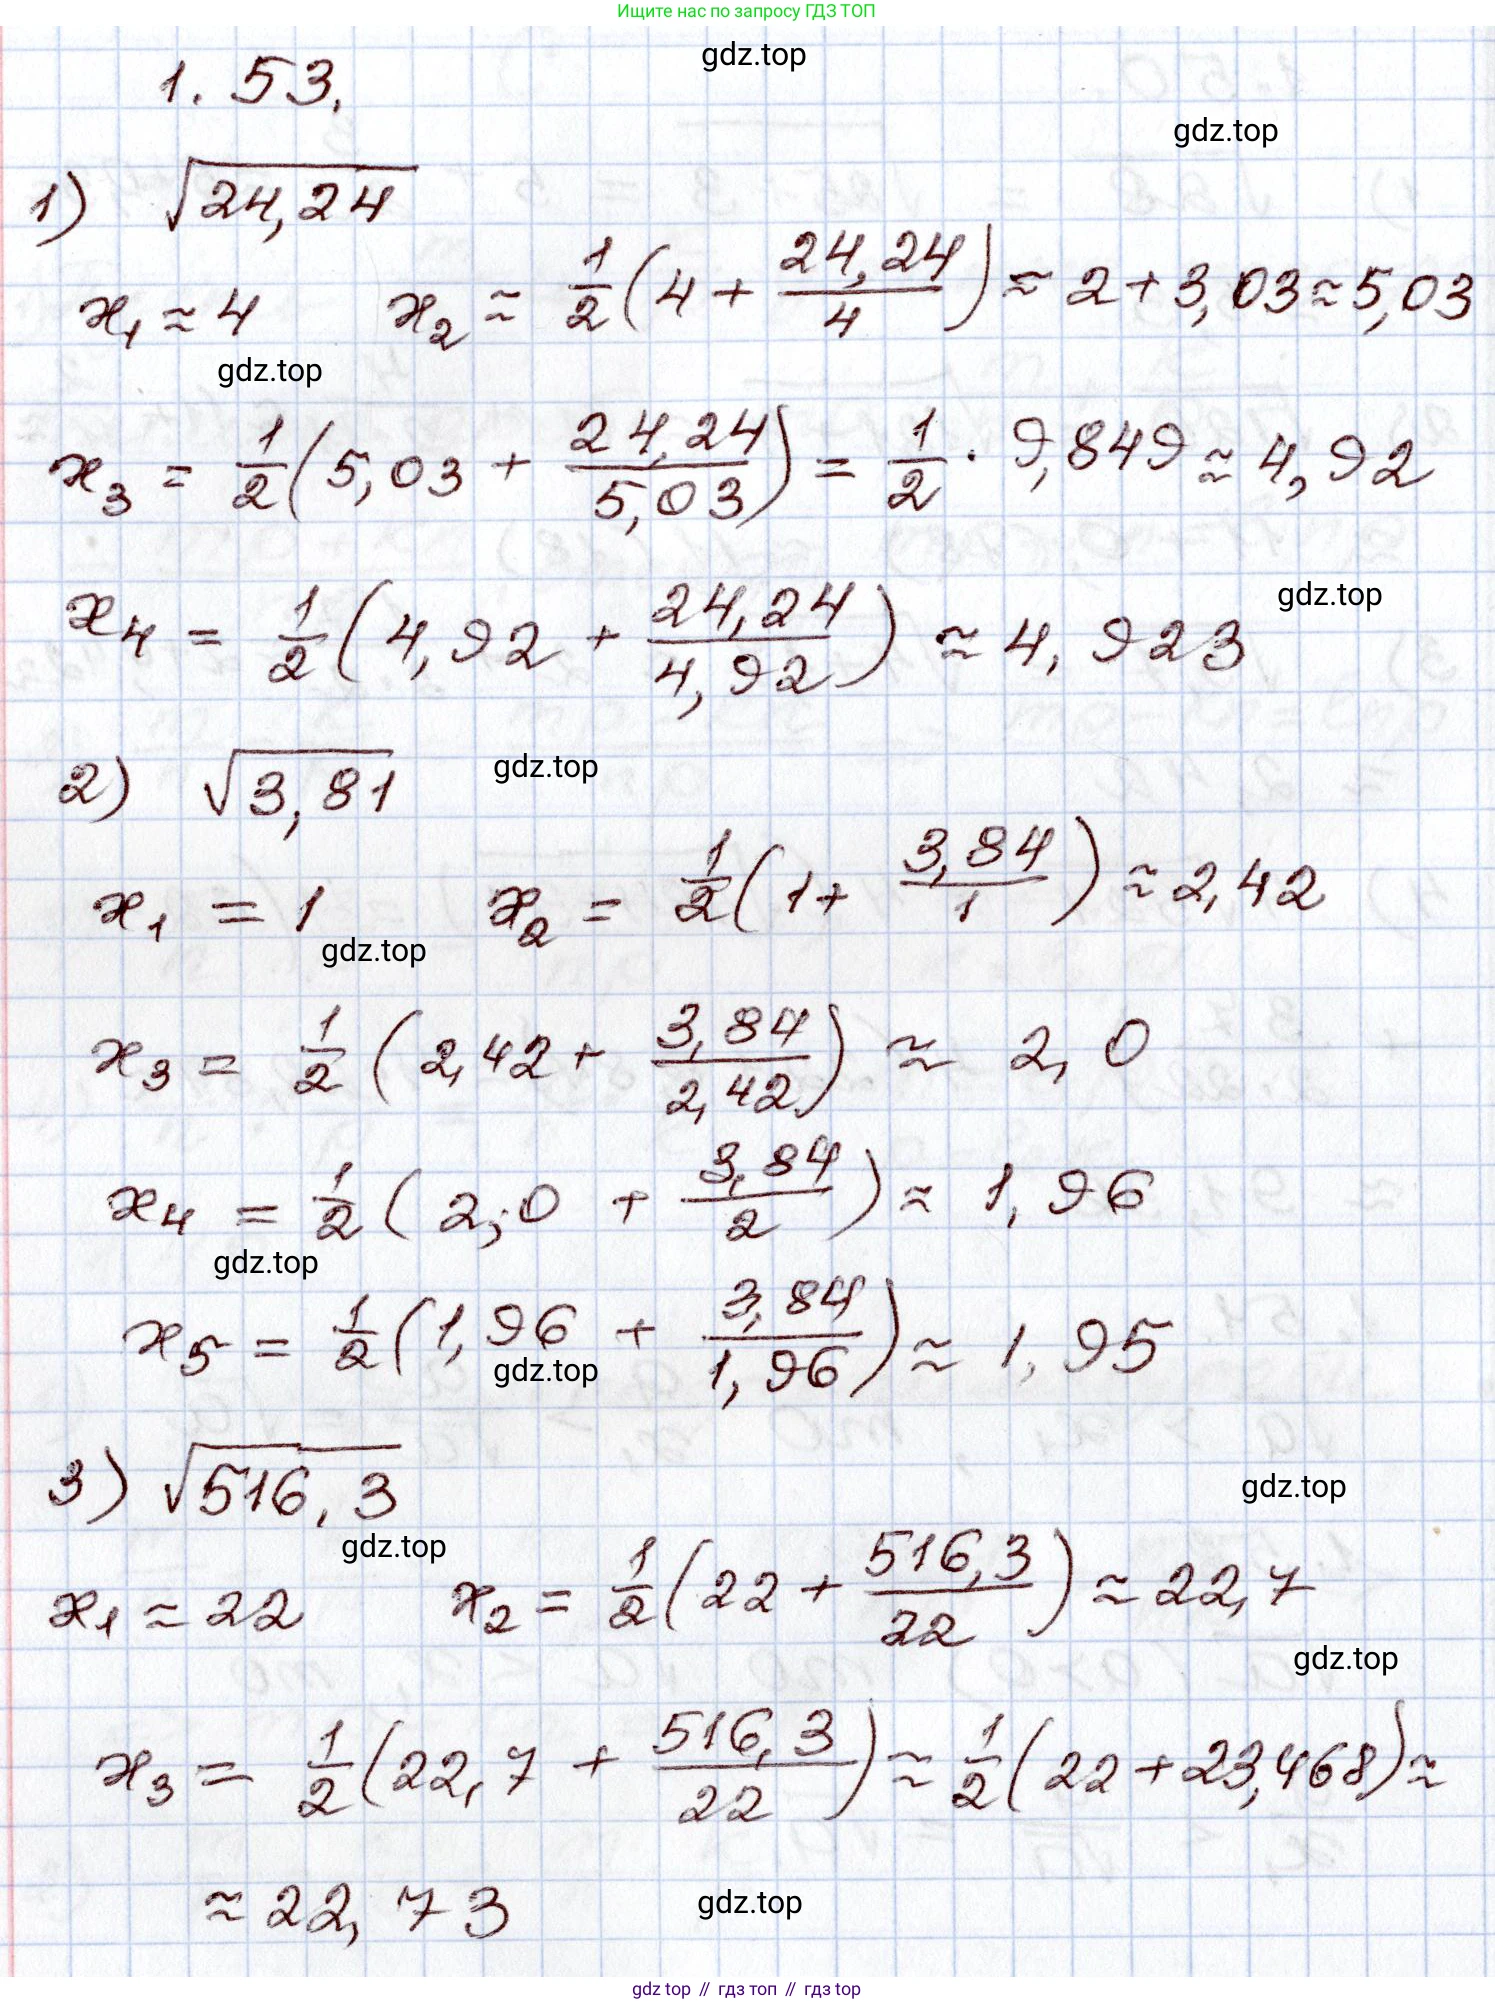 Ищите нас по запросу ГДЗ ТОП
gdz.top
1.53.
gdz.top
1) √24,24
x₁ ≈ 4 x₂ ≈ 1/2 (4 + 24,24/4) ≈ 2 + 3,03 ≈ 5,03
gdz.top
x₃ = 1/2 (5,03 + 24,24/5,03) = 1/2 · 9,849 ≈ 4,92
gdz.top
x₄ = 1/2 (4,92 + 24,24/4,92) ≈ 4,923
gdz.top
2) √3,81
x₁ = 1 x₂ = 1/2 (1 + 3,84/1) ≈ 2,42
gdz.top
x₃ = 1/2 (2,42 + 3,84/2,42) ≈ 2,0
x₄ = 1/2 (2,0 + 3,84/2) ≈ 1,96
gdz.top
x₅ = 1/2 (1,96 + 3,84/1,96) ≈ 1,95
gdz.top
3) √516,3
gdz.top
gdz.top
x₁ ≈ 22 x₂ = 1/2 (22 + 516,3/22) ≈ 22,7
gdz.top
x₃ = 1/2 (22,7 + 516,3/22) ≈ 1/2 (22 + 23,468) ≈
≈ 22,73
gdz.top
gdz top // гдз топ // гдз top